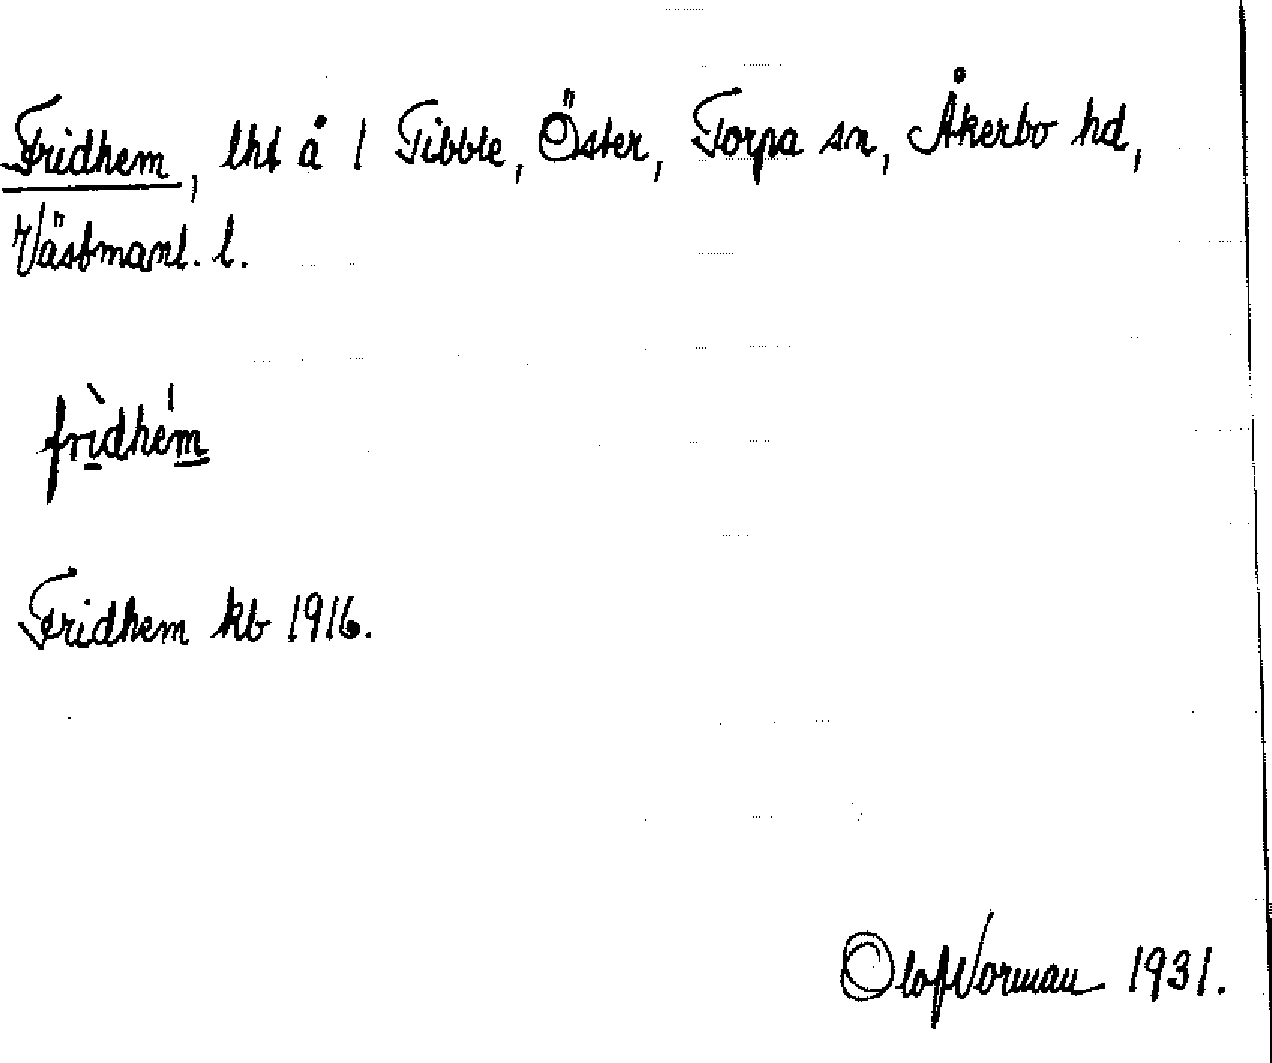 Fridhem, lht å 1 Tibble, Öster, Torpa sn, Åkerbo hd,
Västmanl. l.
frìdhém
Fridhem kb 1916.
Olof Norman 1931.